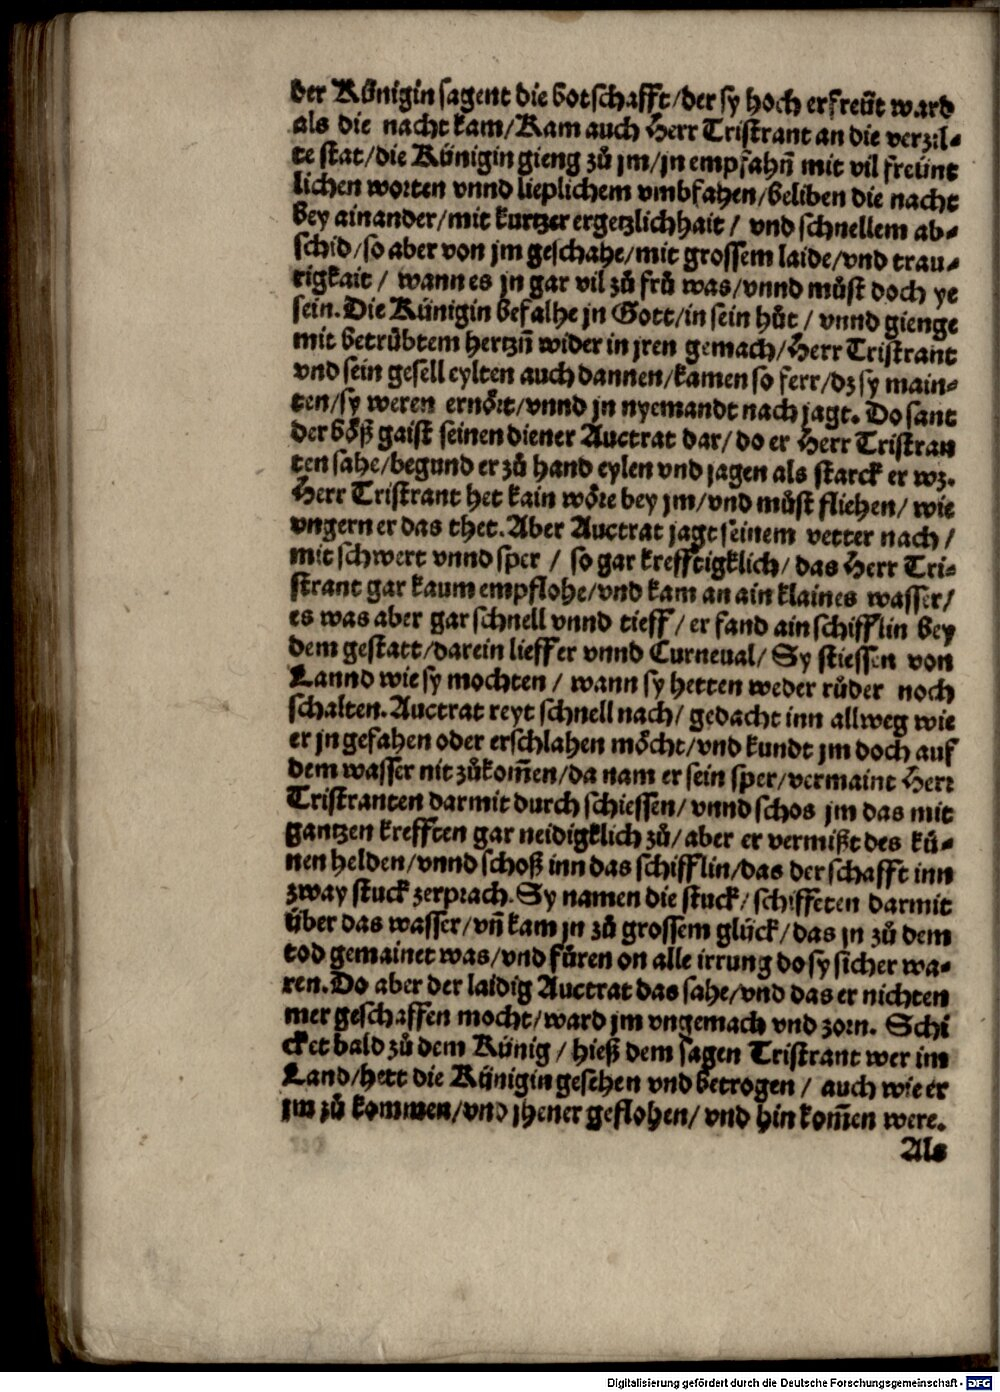 der Künigin sagent die botschafft/der sy hoch erfreüt ward
als die nacht kam/Kam auch Herr Tristrant an die verzil-
te stat/die Künigin gieng zů jm/jn empfahñ mit vil freünt
lichen worten vnnd lieplichem vmbfahen/beliben die nacht
bey ainander/mit kurtzer ergetzlichhait / vnd schnellem ab-
schid/so aber von jm geschahe/mit grossem laide/vnd trau-
rigkait / wann es jn gar vil zů frů was/vnnd můst doch ye
sein. Die Künigin befalhe jn Gott/in sein hůt / vnnd gienge
mit betrůbtem hertzñ wider in jren gemach/Herr Tristrant
vnd sein gesell eylten auch dannen/kamen so ferr/dz sy main-
ten/sy weren ernört/vnnd jn nyemandt nach jagt. Do sant
der böß gaist seinen diener Auctrat dar/ do er Herr Tristran
ten sahe/begund er zů hand eylen vnd jagen als starck er wz.
Herr Tristrant het kain wöre bey jm/vnd můst fliehen/ wie
vngern er das thet. Aber Auctrat jagt seinem vetter nach /
mit schwert vnnd sper / so gar krefftigklich/ das Herr Tri-
strant gar kaum empflohe/vnd kam an ain klaines wasser/
es was aber gar schnell vnnd tieff / er fand ain schifflin bey
dem gestatt/darein lieff er vnnd Curneual/ Sy stiessen von
Lannd wie sy mochten / wann sy hetten weder růder noch
schalten. Auctrat reyt schnell nach/ gedacht inn allweg wie
er jn gefahen oder erschlahen möcht/vnd kundt jm doch auf
dem wasser nit zůkom̃en/da nam er sein sper/vermaint Herr
Tristranten darmit durch schiessen/ vnnd schos jm das mit
gantzen krefften gar neidigklich zů/ aber er vermißt des kü-
nen helden/vnnd schoß inn das schifflin/das der schafft inn
zway stuck zerprach. Sy namen die stuck/ schiffeten darmit
über das wasser/vñ kam jn zů grossem glück/das jn zů dem
tod gemainet was/vnd fůren on alle irrung do sy sicher wa-
ren. Do aber der laidig Auctrat das sahe/vnd das er nichten
mer geschaffen mocht/ward jm vngemach vnd zorn. Schi
cket bald zů dem Künig / hieß dem sagen Tristrant wer im
Land/hett die Künigin gesehen vnd betrogen / auch wie er
jm zů kommen/vnd jhener geflohen/ vnd hin kom̃en were.
Als
Digitalisierung gefördert durch die Deutsche Forschungsgemeinschaft - DFG